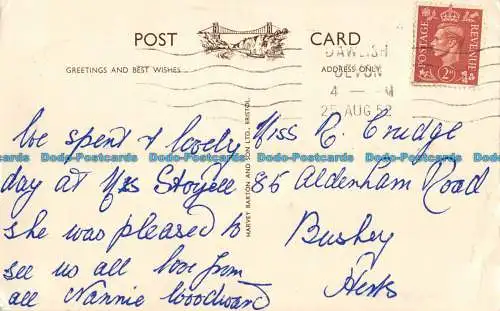 POST CARD
GREETINGS AND BEST WISHES
ADDRESS ONLY
DAWLISH
DEVON
4 — M
25 AUG 52
POSTAGE REVENUE
2D
HARVEY BARTON AND SON LTD., BRISTOL.
We spent a lovely
day at Mrs Stoyell
she was pleased to
see us all love from
all Nannie Woodward
Miss R. Crudge
85 Aldenham Road
Bushey
Herts
Dodo-Postcards Dodo-Postcards Dodo-Postcards Dodo-Postcards Dodo-Postcards